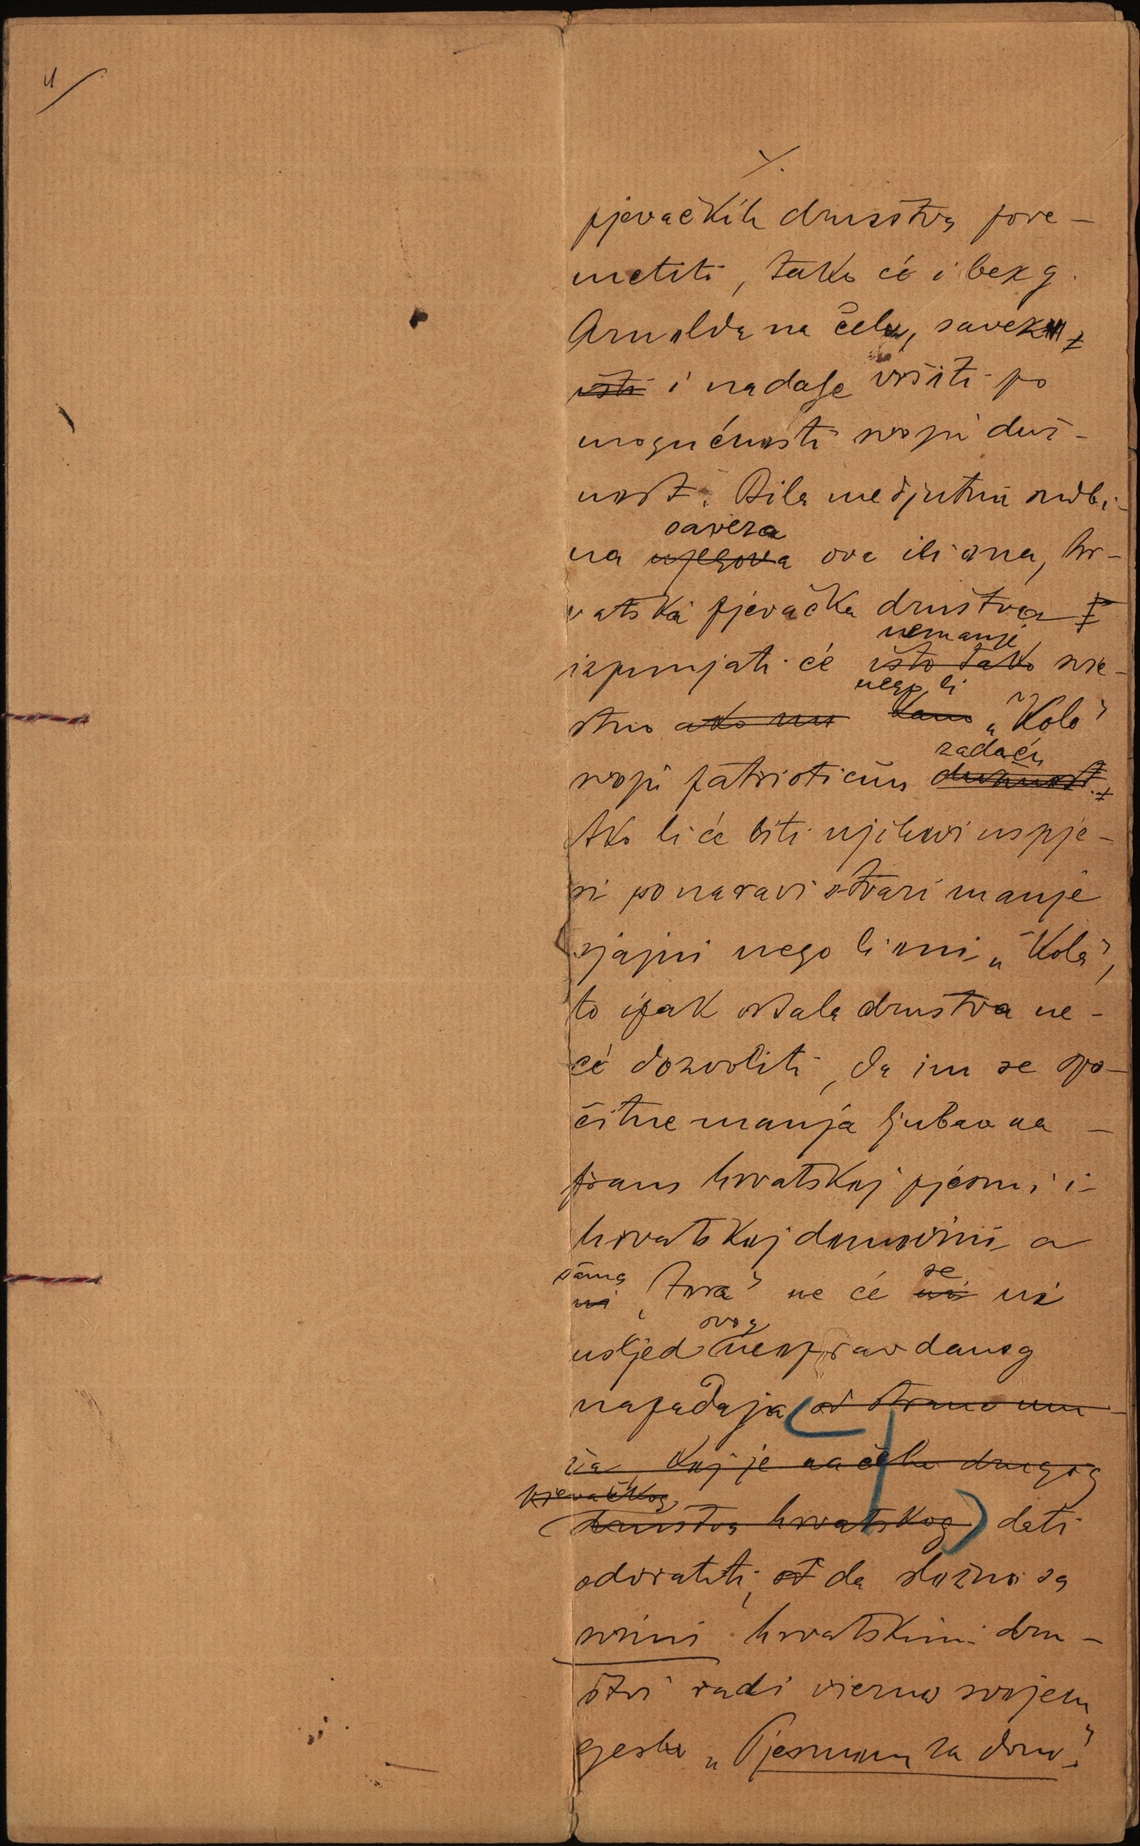 pjevačkih društva pore-
metiti, tako će i bez g.
Arnolda na čelu, savez
i nadalje vršiti po
mogućnosti svoju duž-
nost. Bila medjutim sudbi-
saveza
na njegova ova ili ona, hr-
vatska pjevačka društva
nemanje
izpunjati će isto tako sve-
nego li
stno ako ne kano „Kolo”
zadaću
svoju patriotičnu dužnost.
Ako li će biti njihovi uspje-
si po naravi stvari manje
sjajni nego li oni „Kola”,
to ipak ostala društva ne-
će dozvoliti, da im se spo-
čitne manja ljubav na-
pram hrvatskoj pjesmi i
hrvatskoj domovini a
sama se
ni „Zora” ne će ni ni
ovog
usljed neopravdanog
napadaja (od strane mu-
ža, koj je na čelu drugog
pjevačkog
društva hrvatskog) dati
odvratiti, od da složno sa
svimi hrvatskimi dru-
štvi radi vierno svojem
geslu „Pjesmom za dom.”